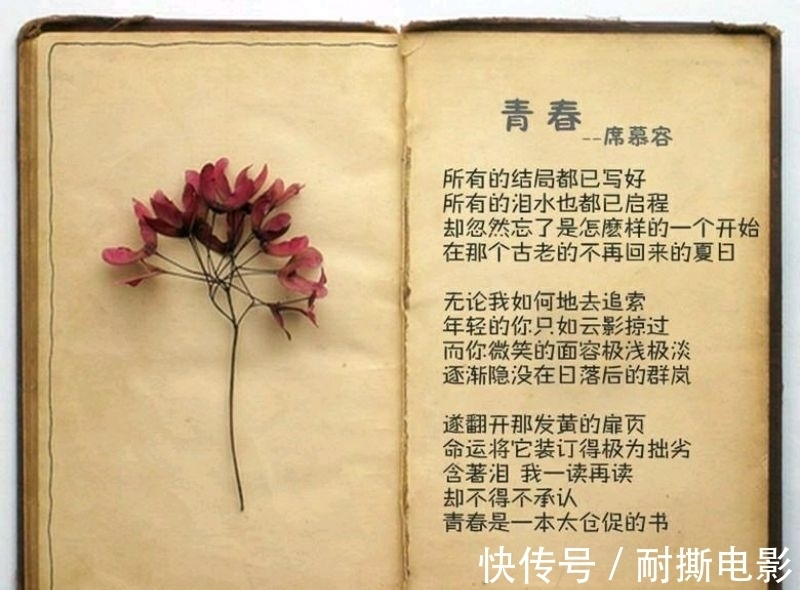 青春
--席慕容
所有的结局都已写好
所有的泪水也都已启程
却忽然忘了是怎麽样的一个开始
在那个古老的不再回来的夏日
无论我如何地去追索
年轻的你只如云影掠过
而你微笑的面容极浅极淡
逐渐隐没在日落后的群岚
遂翻开那发黄的扉页
命运将它装订得极为拙劣
含著泪 我一读再读
却不得不承认
青春是一本太仓促的书
快传号 / 耐撕电影